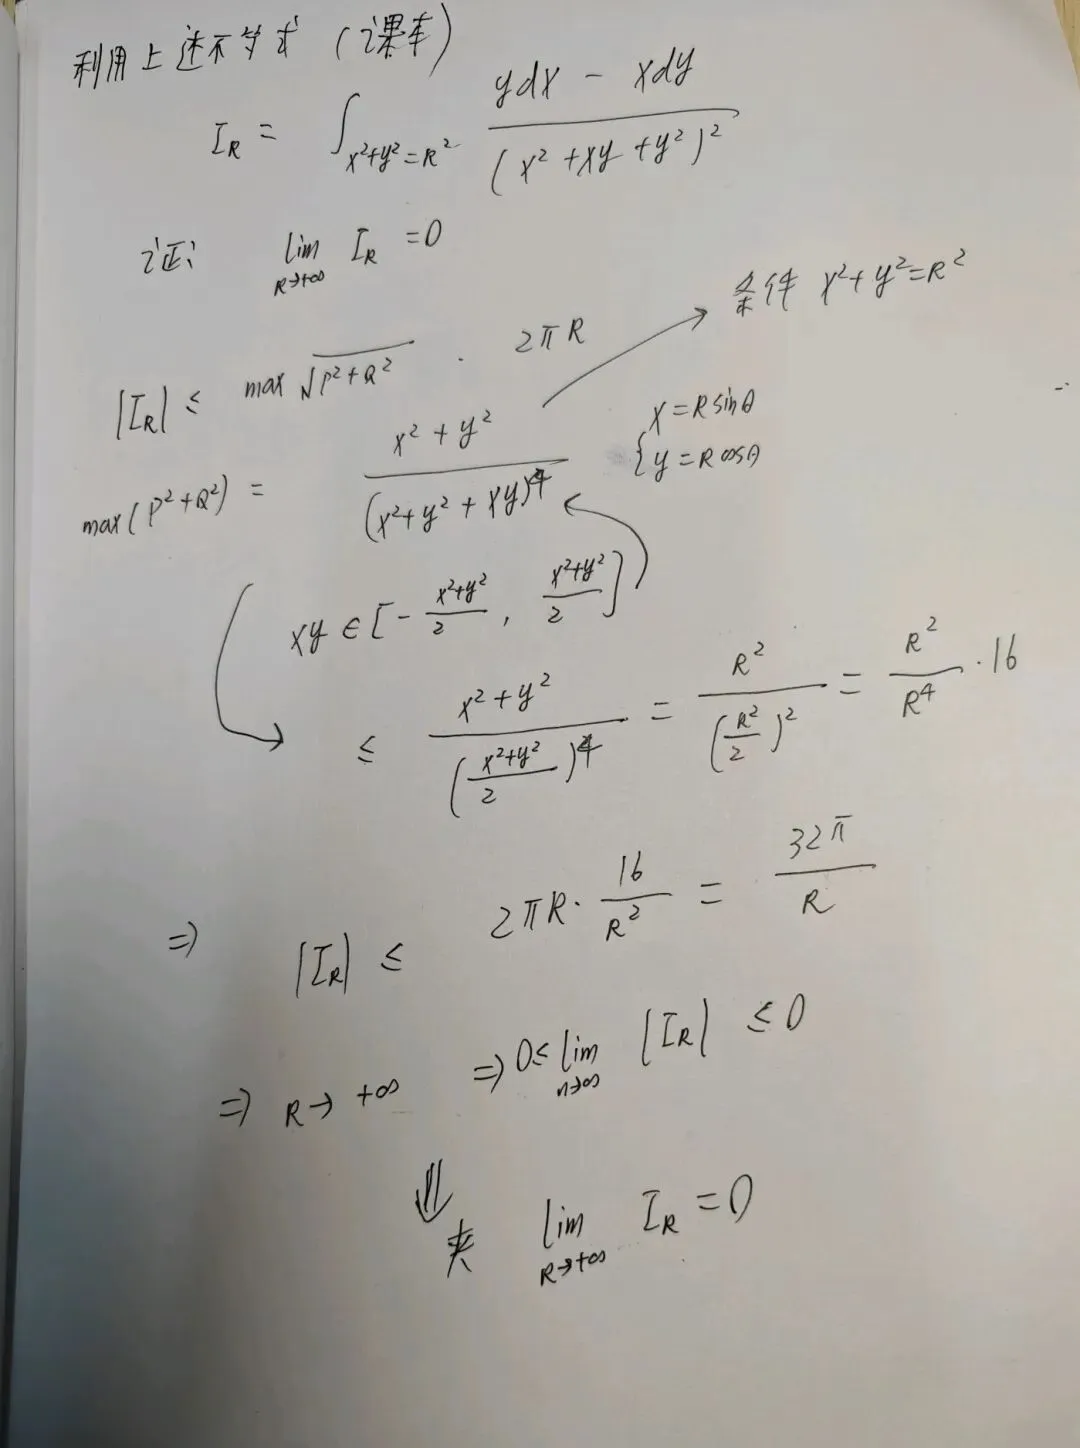 利用上述不等式 (课本)
I_R = ∫_{x²+y²=R²} (ydx - xdy) / (x²+xy+y²)²
证: lim_{R→+∞} I_R = 0
条件 x²+y²=R²
|I_R| ≤ max √(P²+Q²) · 2πR
{ x=Rsinθ
y=Rcosθ
max(P²+Q²) = (x²+y²) / (x²+y²+xy)⁴
xy ∈ [-(x²+y²)/2, (x²+y²)/2]
≤ (x²+y²) / ((x²+y²)/2)⁴ = R² / (R²/2)² = R²/R⁴ · 16
⇒ |I_R| ≤ 2πR · 16/R² = 32π/R
⇒ R→+∞ ⇒ 0≤ lim_{n→∞} |I_R| ≤ 0
⇓
夹 lim_{R→+∞} I_R = 0